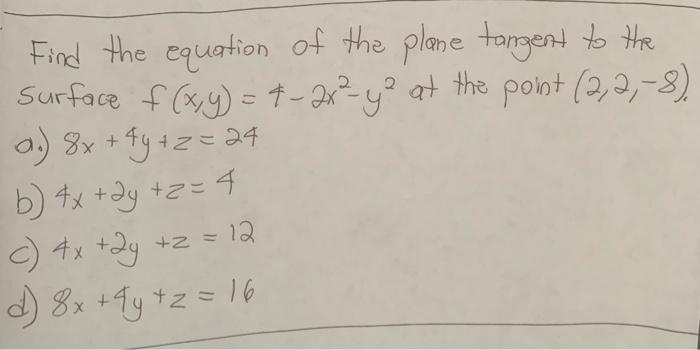 Find the equation of the plane tangent to the
surface f(x,y) = 4-2x²-y² at the point (2,2,-8).
a.) 8x + 4y + z = 24
b) 4x + 2y + z = 4
c) 4x + 2y + z = 12
d) 8x + 4y + z = 16